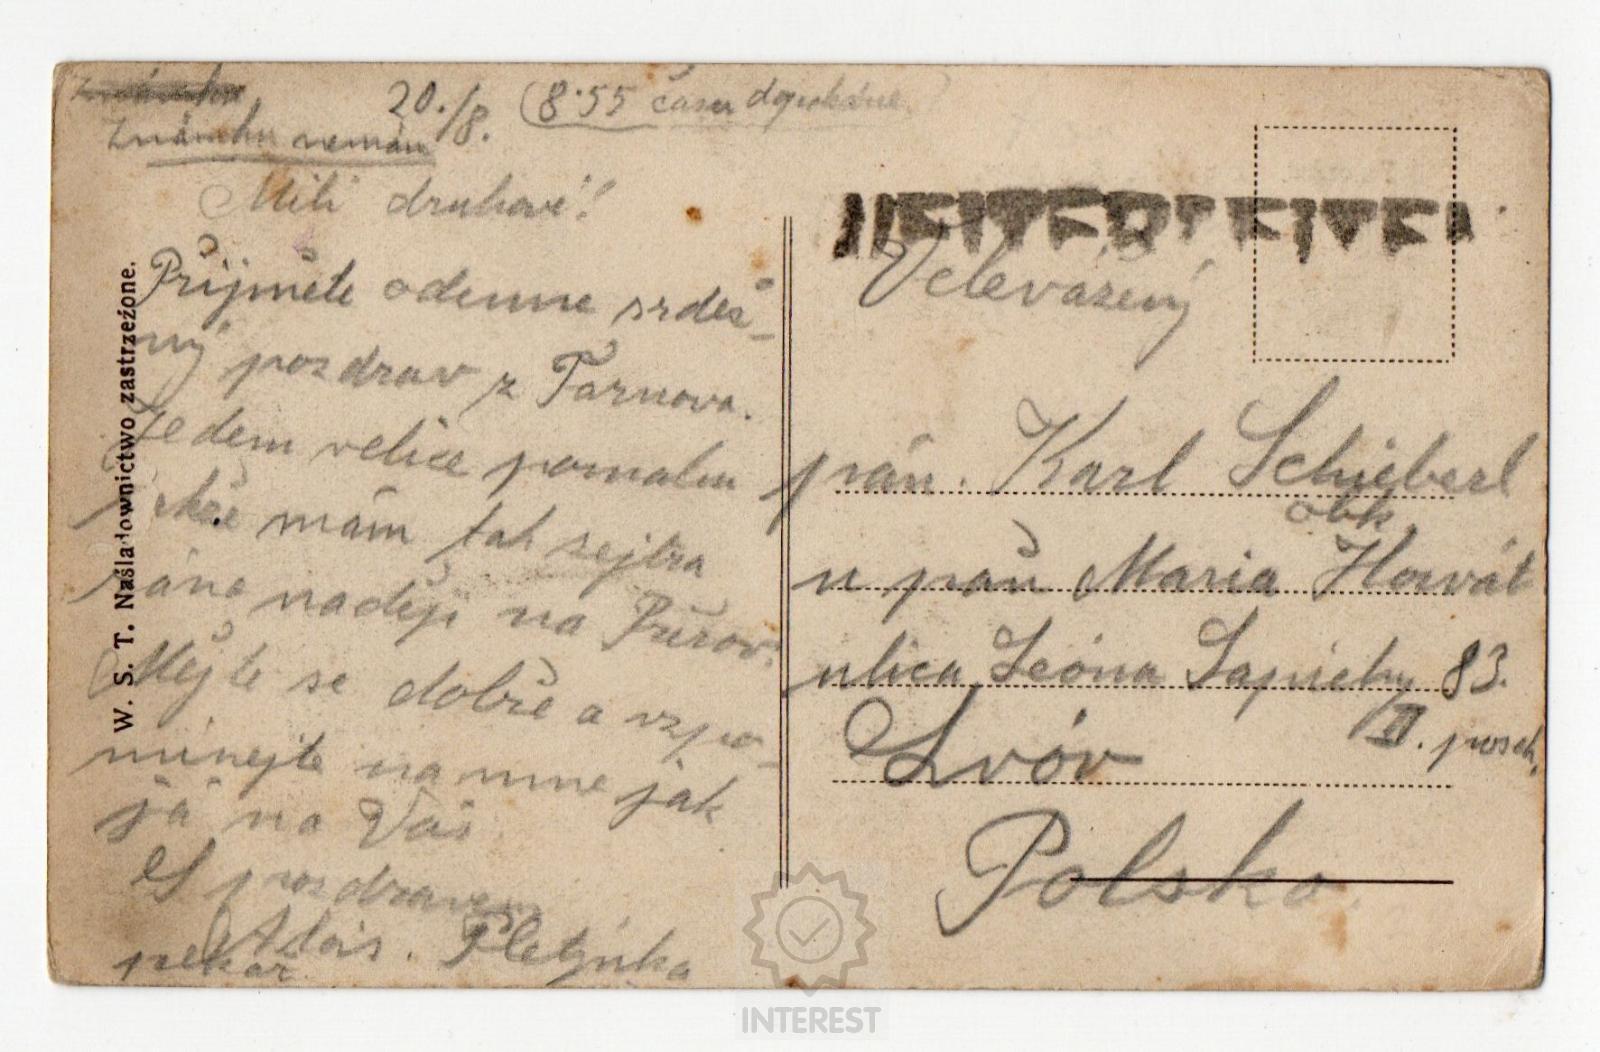 20./8. (8·55 času
Známku nemám
Milí druhové!
Přijměte odemne srdeč-
ný pozdrav z Tarnova.
Jedem velice pomalu
mám tak zejtra
ráno naději na Přerov.
Mějte se dobře a vzpo-
mínejte na mne jak
já na Vás
S pozdravem
Alois. Pletýnka
pekař
W. S. T. Naśladownictwo zastrzeżone.
Velevážený
pán. Karl Schieberl
obk.
u paň Maria Horvát
ulica Leóna Sapiehy 83.
III. posch.
Lvóv
Polsko.
INTEREST